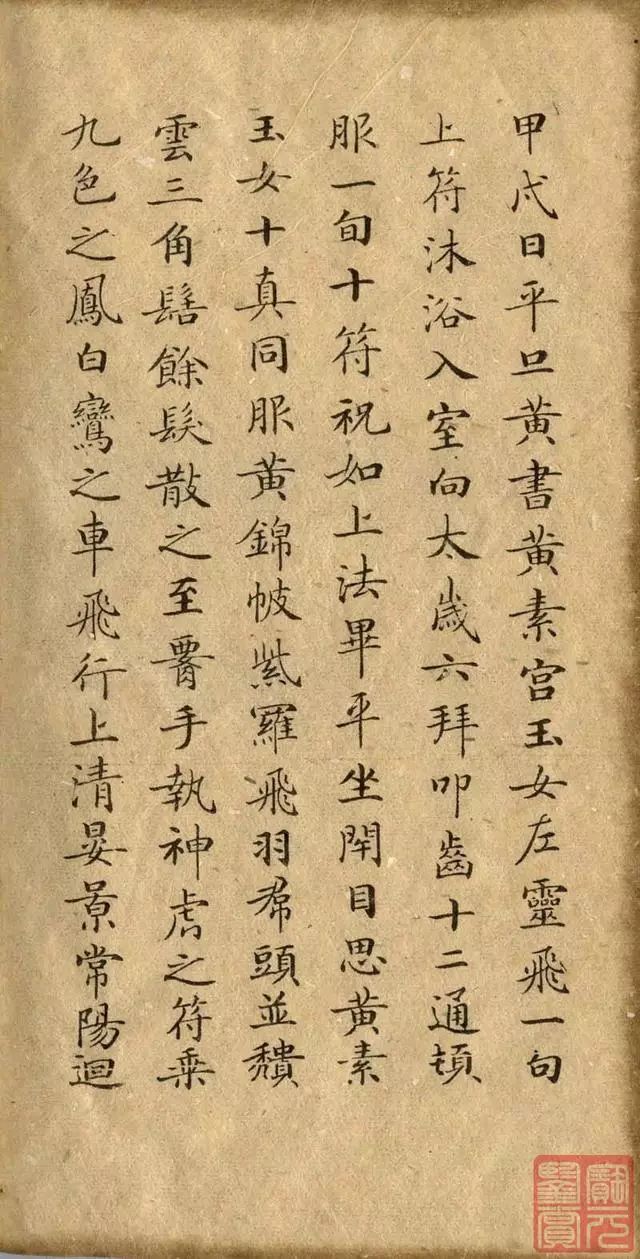 甲戌日平旦黄書黄素宮玉女左靈飛一旬
上符沐浴入室向太歲六拜叩齒十二通頓
服一旬十符祝如上法畢平坐閇目思黄素
玉女十真同服黄錦帔紫羅飛羽帬頭並頽
雲三角髻餘髮散之至署手執神虎之符乗
九色之鳳白鸞之車飛行上清晏景常陽迴